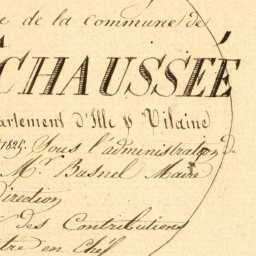 de la commune de
CHAUSSEÉ
artement d'Ille & Vilaine
1825, Sous l'administration de
Mr. Basnel Maire
Direction
des Contributions
tre en Chef